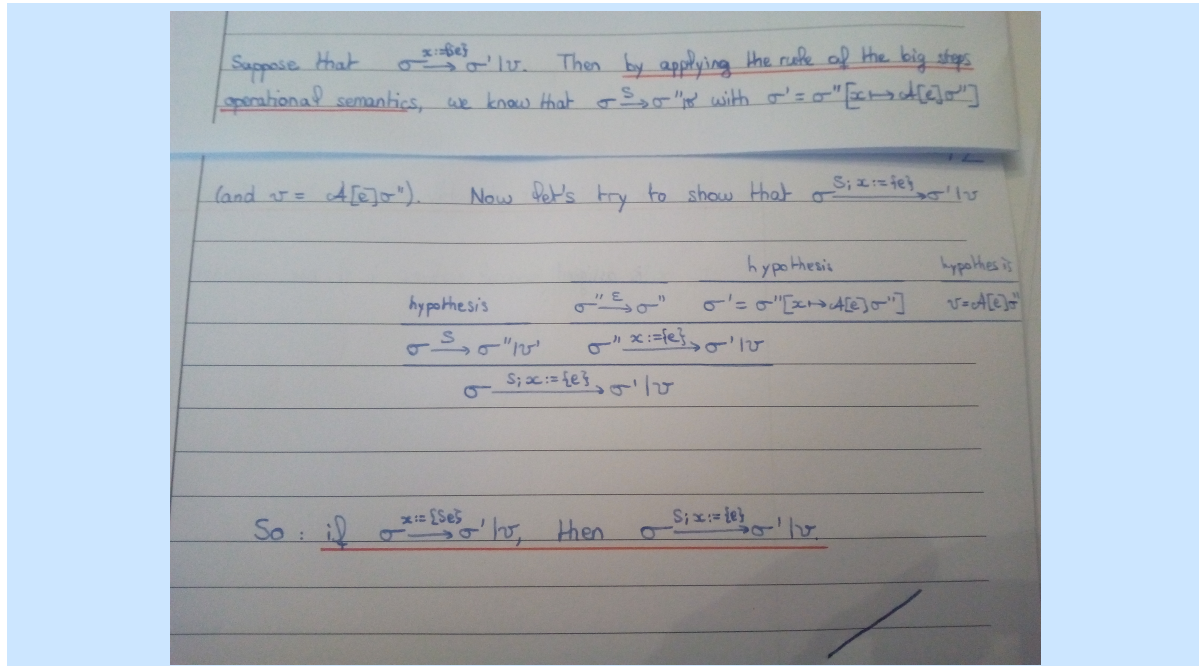 Suppose that σ —x:={Se}→ σ'|v. Then by applying the rule of the big steps
operational semantics, we know that σ —S→ σ''|v' with σ' = σ''[x↦A[e]σ'']
(and v = A[e]σ''). Now let's try to show that σ —S; x:={e}→ σ'|v
hypothesis hypothesis
hypothesis σ'' —ε→ σ'' σ' = σ''[x↦A[e]σ''] v=A[e]σ''
σ —S→ σ''|v' σ'' —x:={e}→ σ'|v
σ —S; x:={e}→ σ'|v
So : if σ —x:={Se}→ σ'|v, then σ —S; x:={e}→ σ'|v.